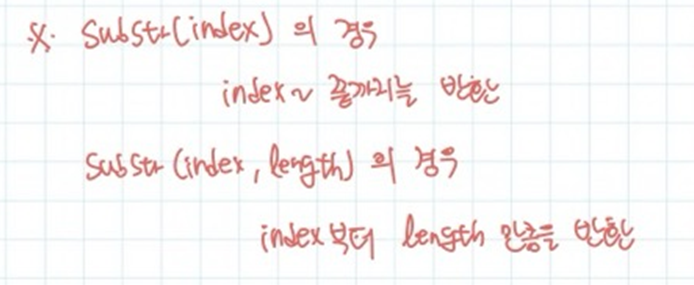 ※. Substr(index) 의 경우
index ~ 끝까지를 반환
Substr (index, length) 의 경우
index부터 length 만큼을 반환